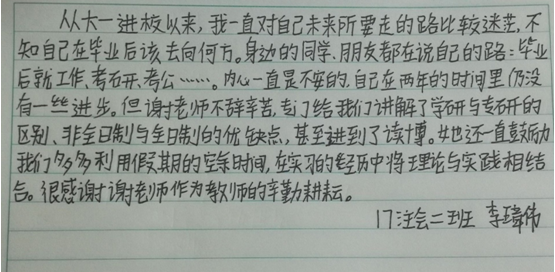 从大一进校以来，我一直对自己未来所要走的路比较迷茫，不
知自己在毕业后该去向何方。身边的同学、朋友都在说自己的路：毕业
后就工作、考研、考公……。内心一直是不安的，自己在两年的时间里仍没
有一丝进步。但谢老师不辞辛苦，专门给我们讲解了学研与专研的
区别、非全日制与全日制的优缺点，甚至讲到了读博。她还一直鼓励
我们多多利用假期的空余时间，在实习的经历中将理论与实践相结
合。很感谢谢老师作为教师的辛勤耕耘。
17注会二班 李璋伟